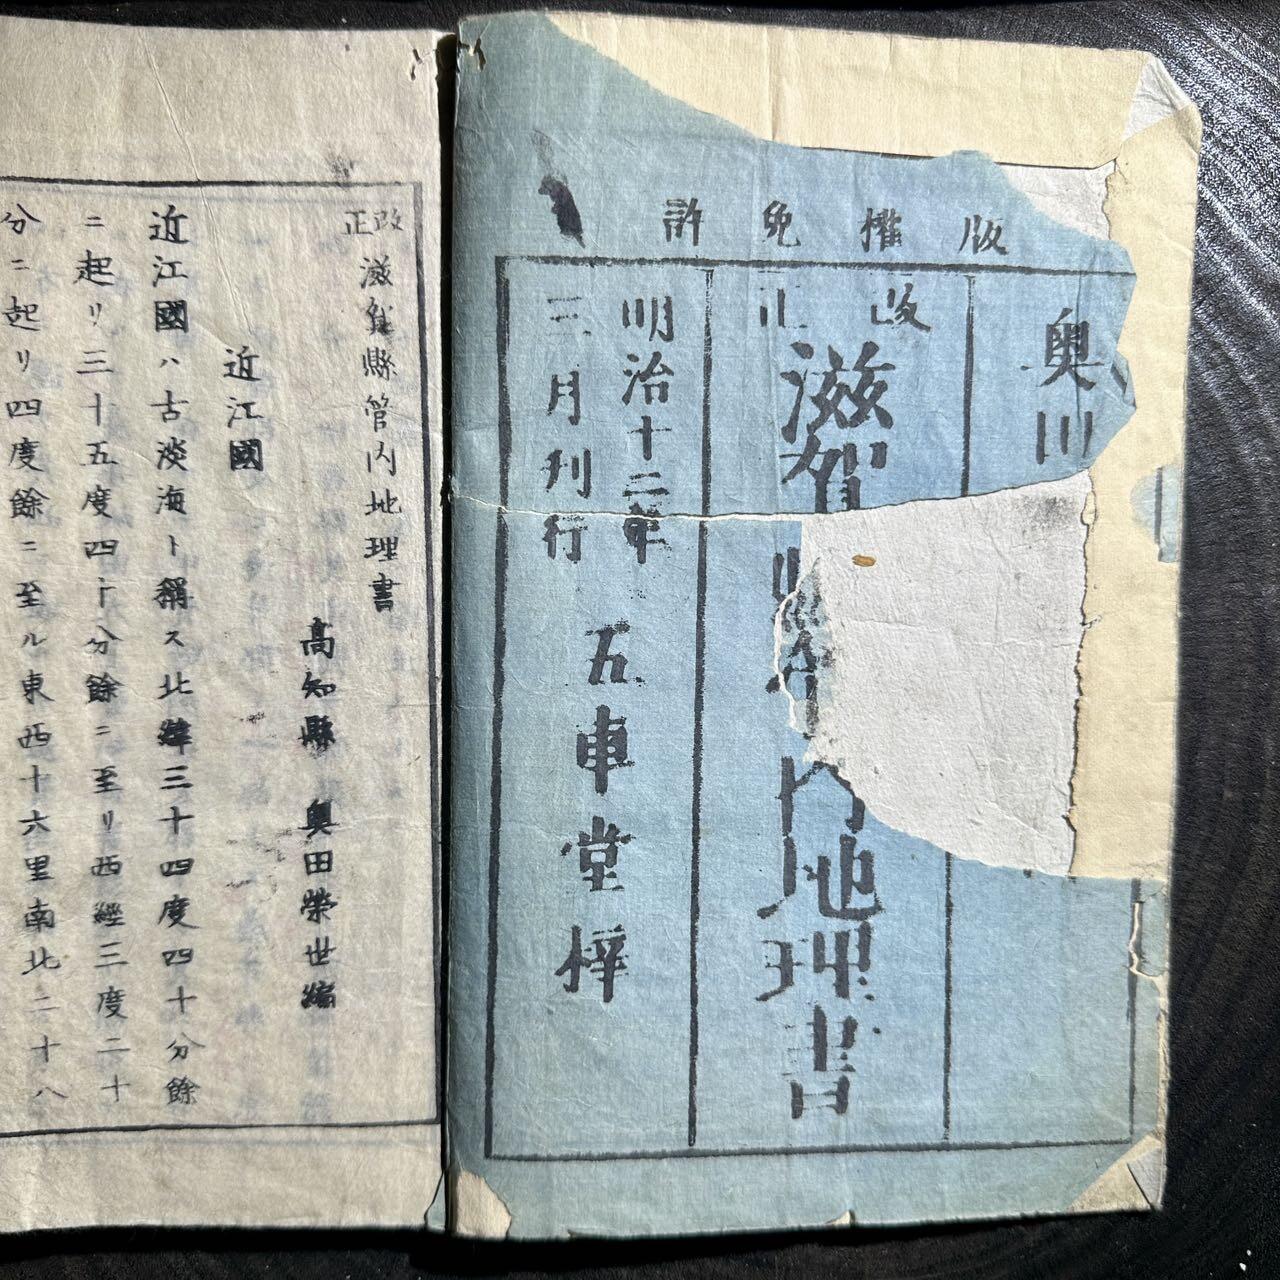 版權免許
奥田
改正
滋賀縣管内地理書
明治十二年
三月刊行
五車堂梓
改正滋賀縣管内地理書
高知縣 奥田榮世編
近江國
近江國ハ古淡海ト稱ス北緯三十四度四十分餘
ニ起リ三十五度四十分餘ニ至リ西經三度二十
分ニ起リ四度餘ニ至ル東西十六里南北二十八